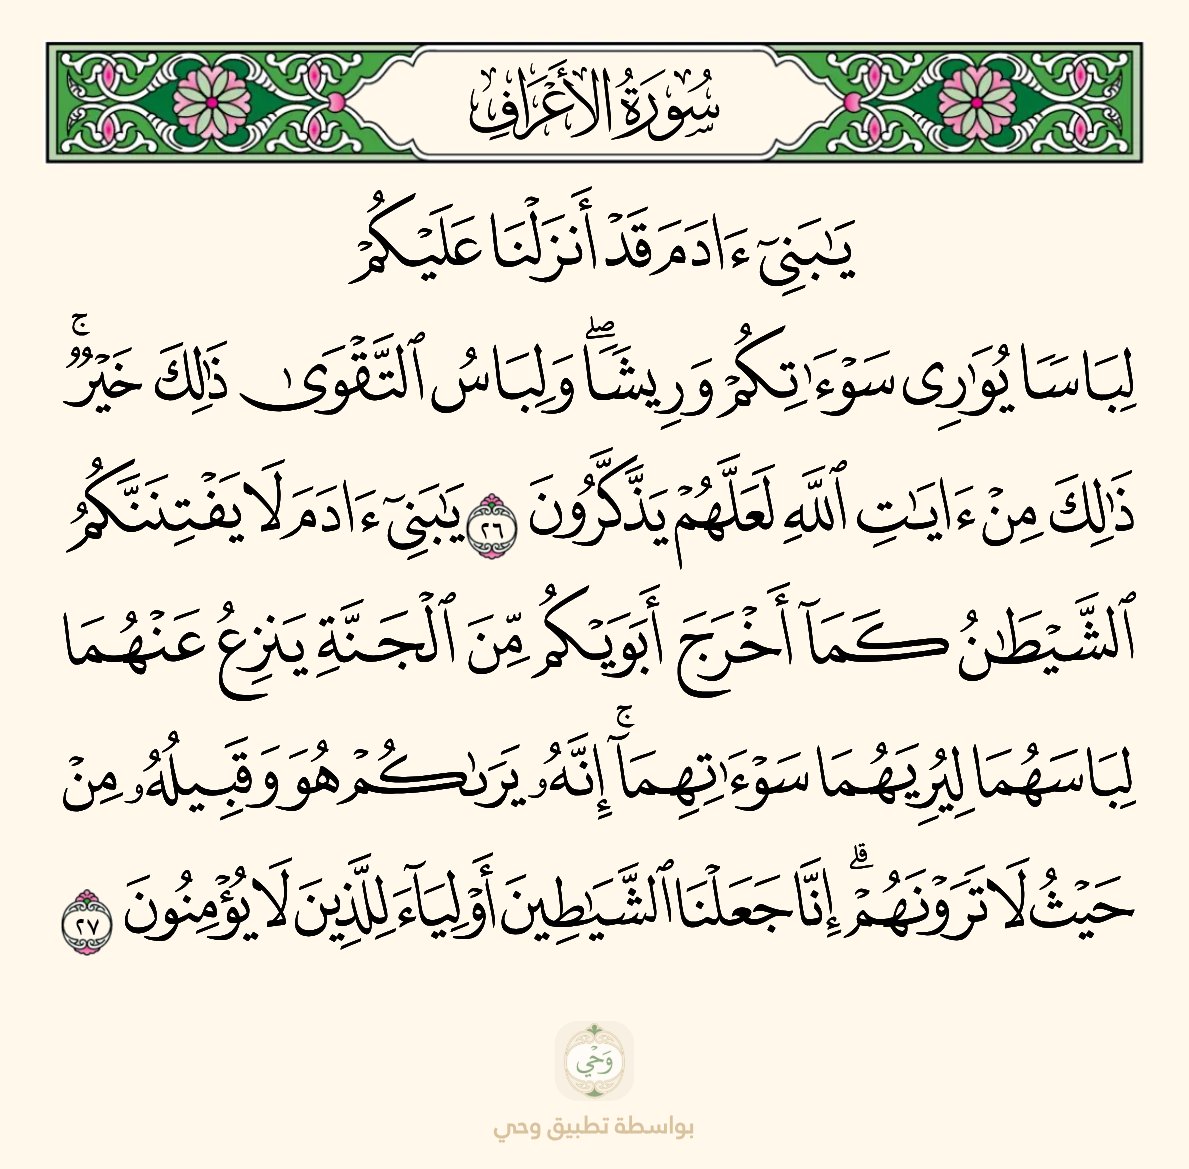 سُورَةُ الأَعْرَافِ
يَـٰبَنِىٓ ءَادَمَ قَدْ أَنزَلْنَا عَلَيْكُمْ
لِبَاسًا يُوَٰرِى سَوْءَٰتِكُمْ وَرِيشًا ۖ وَلِبَاسُ ٱلتَّقْوَىٰ ذَٰلِكَ خَيْرٌ ۚ
ذَٰلِكَ مِنْ ءَايَـٰتِ ٱللَّهِ لَعَلَّهُمْ يَذَّكَّرُونَ ٢٦ يَـٰبَنِىٓ ءَادَمَ لَا يَفْتِنَنَّكُمُ
ٱلشَّيْطَـٰنُ كَمَآ أَخْرَجَ أَبَوَيْكُم مِّنَ ٱلْجَنَّةِ يَنزِعُ عَنْهُمَا
لِبَاسَهُمَا لِيُرِيَهُمَا سَوْءَٰتِهِمَآ ۚ إِنَّهُۥ يَرَىٰكُمْ هُوَ وَقَبِيلُهُۥ مِنْ
حَيْثُ لَا تَرَوْنَهُمْ ۗ إِنَّا جَعَلْنَا ٱلشَّيَـٰطِينَ أَوْلِيَآءَ لِلَّذِينَ لَا يُؤْمِنُونَ ٢٧
وَحْي
بواسطة تطبيق وحي